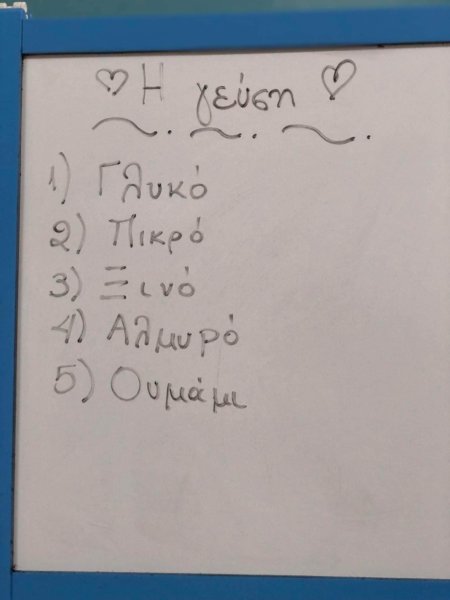 ♡ Η γεύση ♡
1) Γλυκό
2) Πικρό
3) Ξινό
4) Αλμυρό
5) Ουμάμι